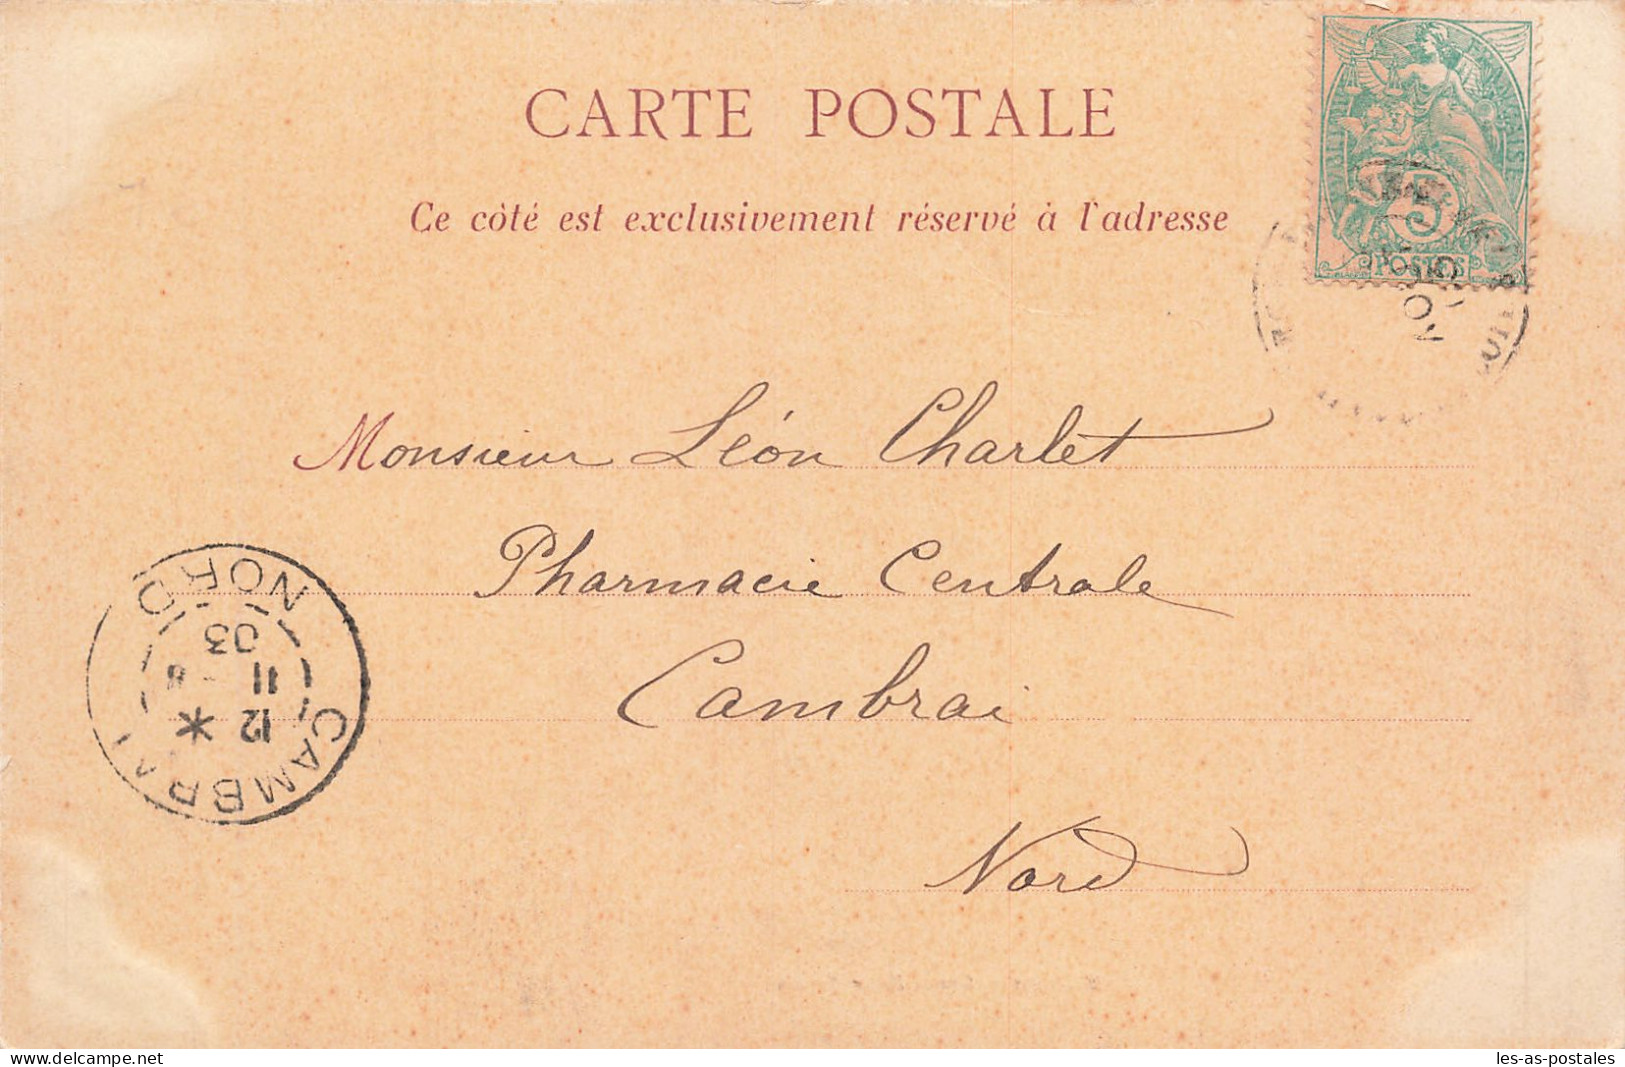 CARTE POSTALE
Ce côté est exclusivement réservé à l'adresse
5
POSTES
Monsieur Léon Charlet
Pharmacie Centrale
Cambrai
Nord
CAMBRAI
12
11
03
NORD
www.delcampe.net
les-as-postales